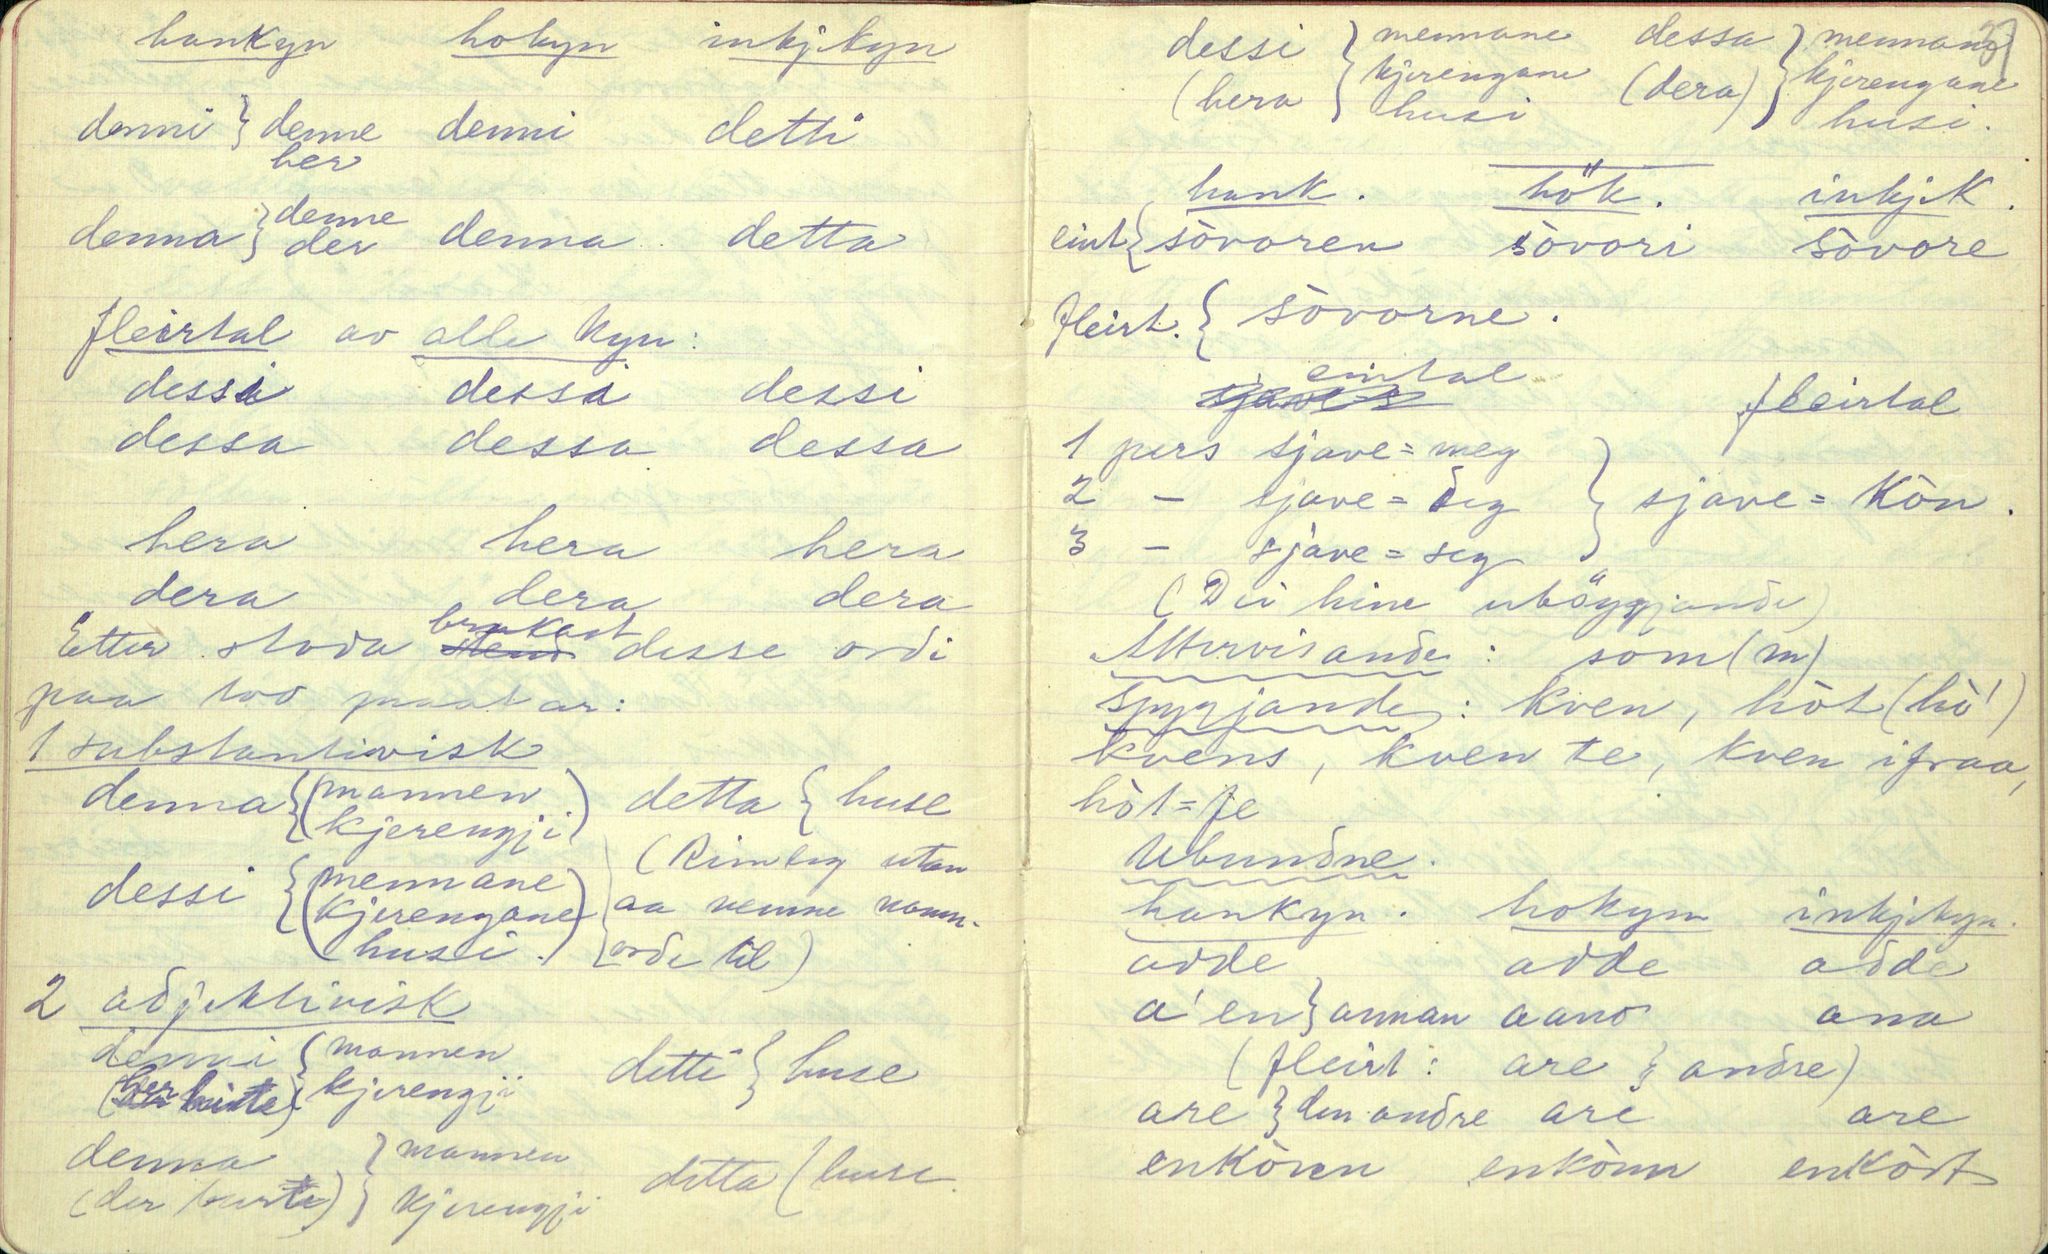 hankyn hokyn inkjekyn
denni } denne her denni detti
denna } denne der denna detta
fleirtal av alle kyn:
dessi dessi dessi
dessa dessa dessa
hera hera hera
dera dera dera
Etter stoda brukast desse ordi
paa tvo maatar:
1 substantivisk
denna { (mannen kjerengji) detta { huse
dessi { (mennane kjerengane husi.) (Rimeleg utan
aa nemne namn-
orde til)
2 adjektivisk
denni { mannen kjerengji detti } huse
denna } mannen detta ( huse.
(der burte) kjerengji
37
dessi } mennane dessa } mennane
(hera } kjerengane (dera) } kjerengane
husi husi.
hank. hök. inkjek.
eint { sòvoren sòvori sòvore
fleirt. { sòvorne.
eintal fleirtal
1 pers sjave = meg
2 — sjave = deg } sjave = kòn.
3 — sjave = seg
(Dei hine uböygjande)
Attervisande: som (m)
Spyrjande: kven, hòt (hò')
kvens, kven te, kven ifraa,
hòt = fe
Ubundne.
hankyn. hokyn inkjekyn.
adde adde adde
a'en } annan aano ana
(fleirt: are } andre)
are } den andre are are
enkòrn enkòrn enkòrt